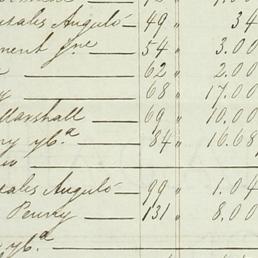 zales Anguló — 49 " 34
ment Jne — 54 " 3.00
— 62 " 2.00
— 68 " 17.00
Marshall — 69 " 10.00
ny yb.ª — 84 " 16.68
zales Anguló — 99 " 1.04
Penny — 131 " 8.00
yb.ª